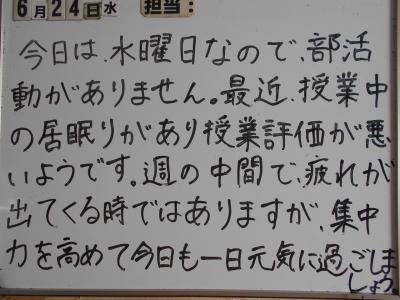 6月24日水 担当:
今日は、水曜日なので、部活
動がありません。最近、授業中
の居眠りがあり授業評価が悪
いようです。週の中間で、疲れが
出てくる時ではありますが、集中
力を高めて今日も一日元気に過ごしま
しょう。